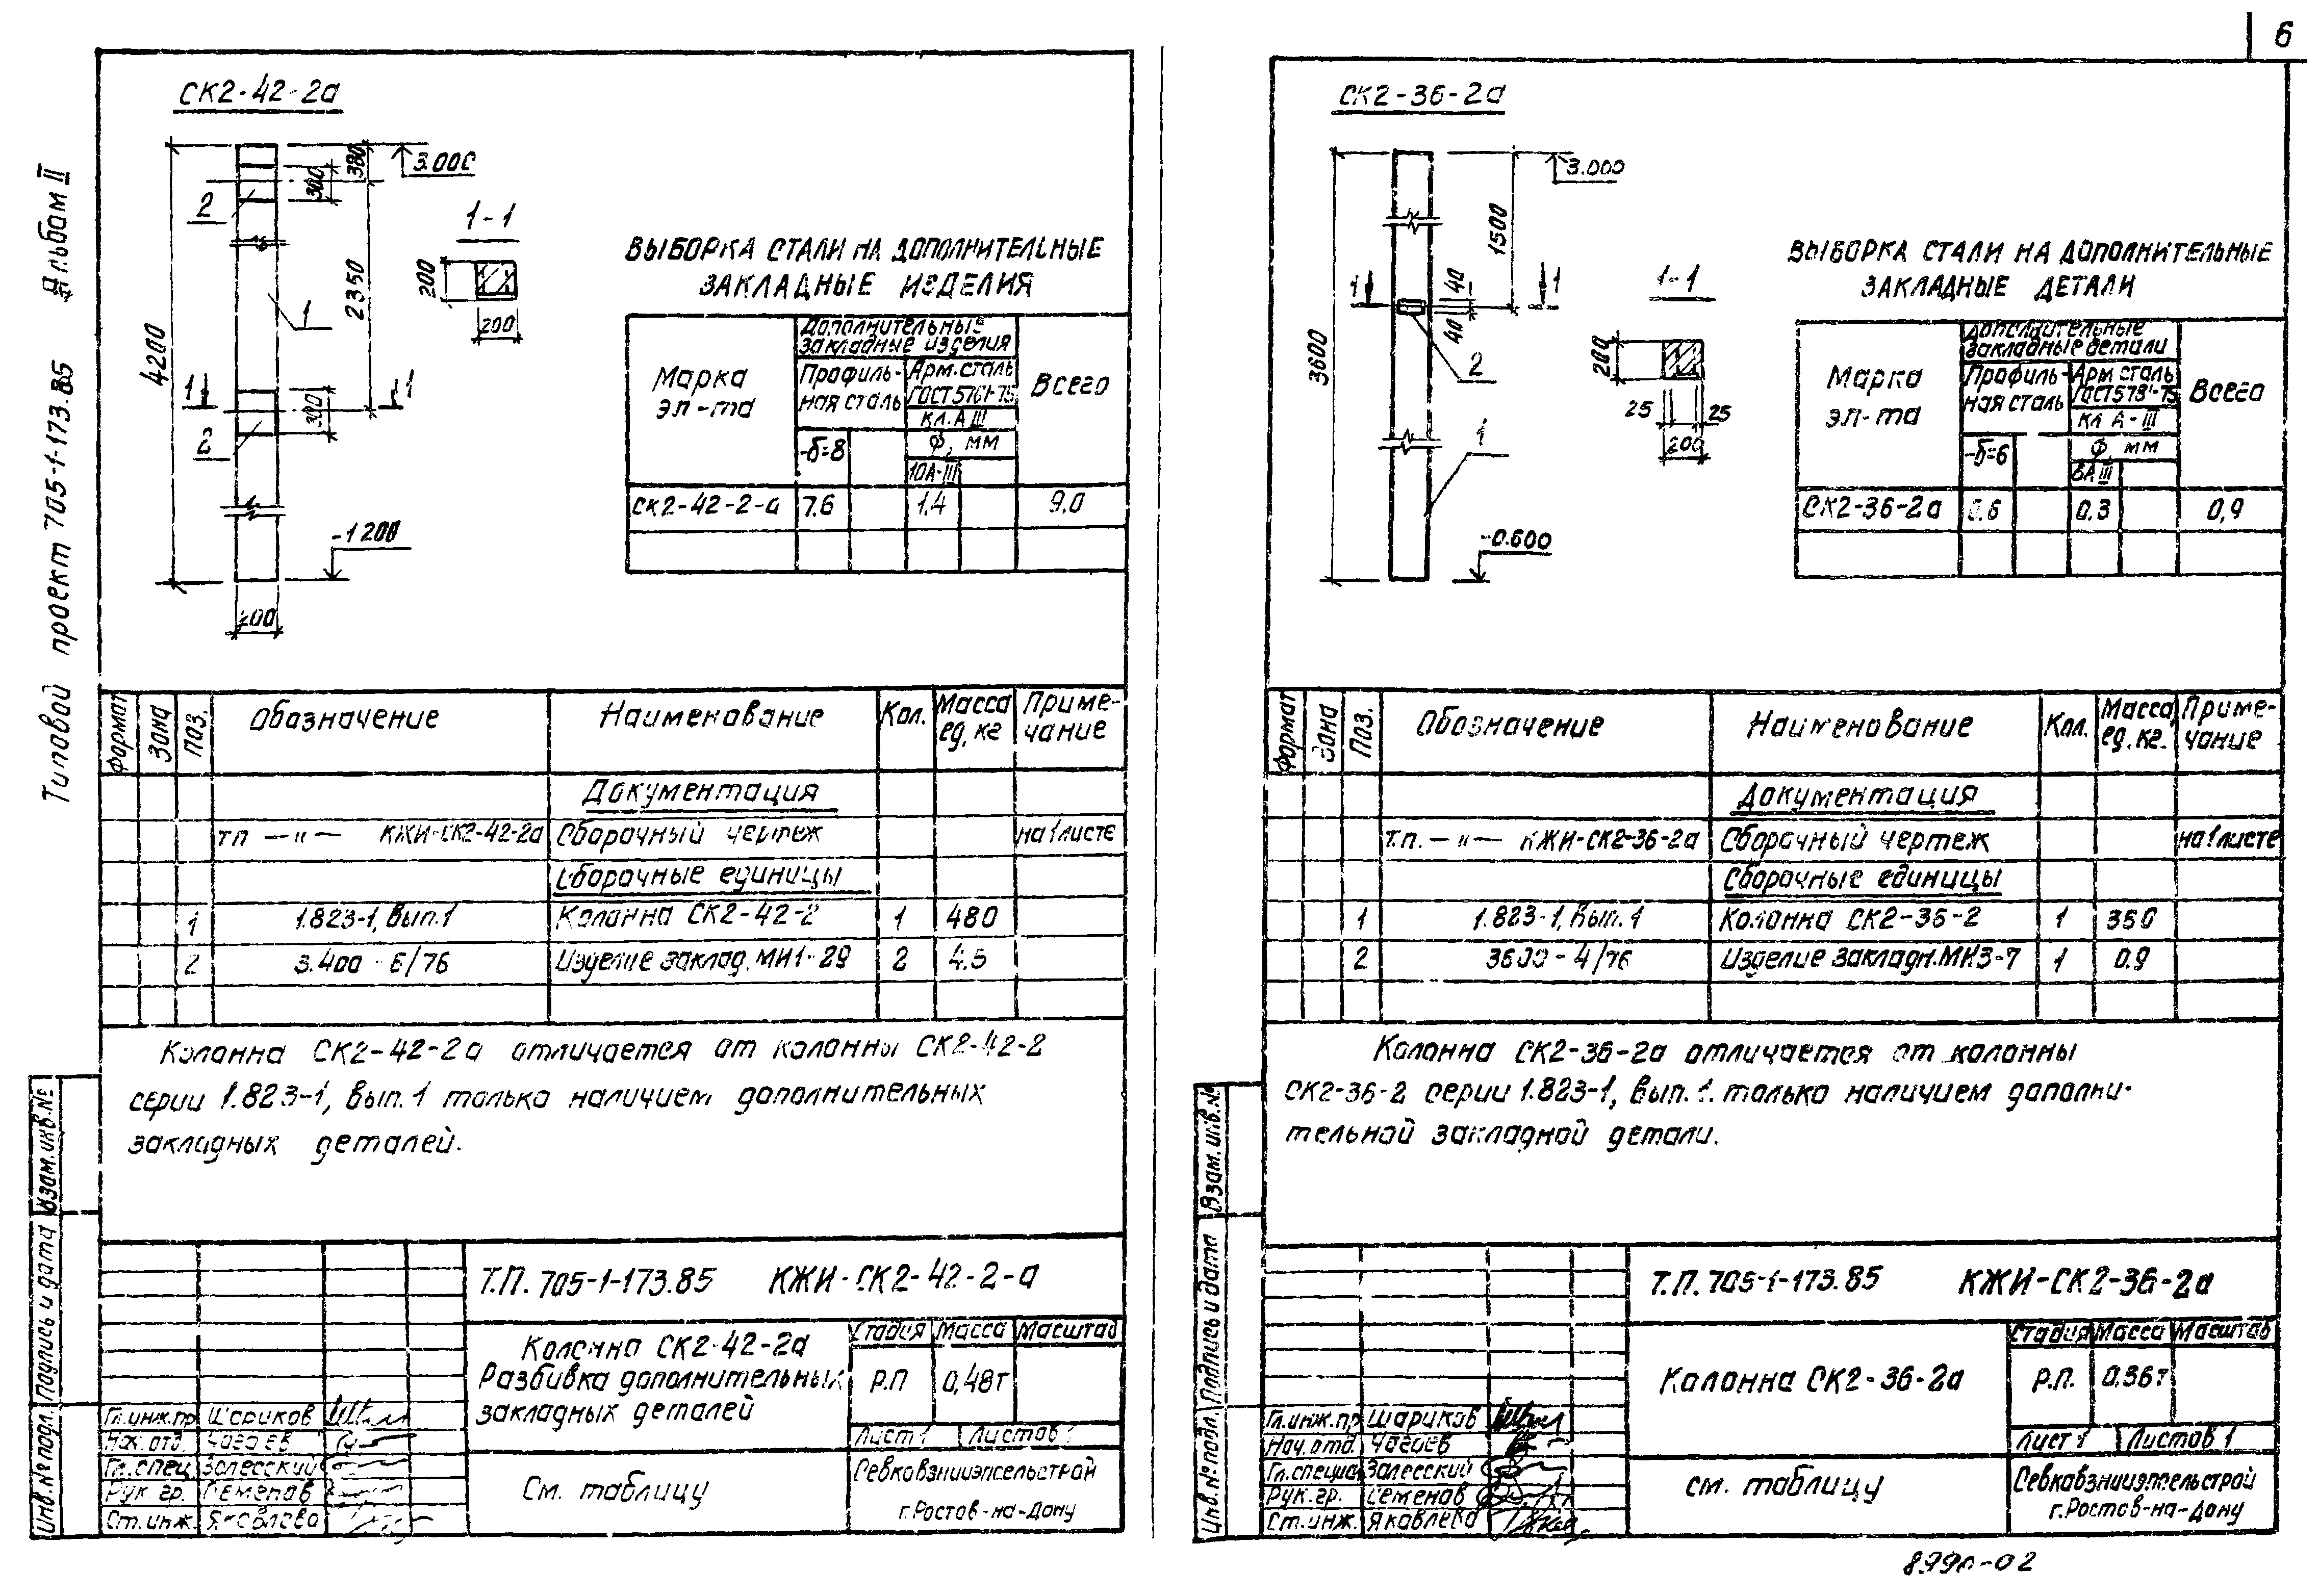 6
Типовой проект 705-1-173.85 Альбом II
СК2-42-2а
3.000
380
300
2
2350
1
4200
1 1
300
2
-1200
200
1-1
200
200
ВЫБОРКА СТАЛИ НА ДОПОЛНИТЕЛЬНЫЕ
ЗАКЛАДНЫЕ ИЗДЕЛИЯ
Марка эл-та
Дополнительные закладные изделия
Профильная сталь
Арм. сталь ГОСТ 5781-75
кл. А III
Всего
-δ=8
Ф, мм
10А-III
СК2-42-2-а 7.6 1.4 9.0
Формат Зона Поз. Обозначение Наименование Кол. Масса ед, кг Приме-чание
Документация
ТП —"— КЖИ-СК2-42-2а Сборочный чертеж на 1 листе
Сборочные единицы
1 1.823-1, Вып.1 Колонна СК2-42-2 1 480
2 3.400-6/76 Изделие заклад. МИ1-29 2 4.5
Колонна СК2-42-2а отличается от колонны СК2-42-2
серии 1.823-1, Вып.1 только наличием дополнительных
закладных деталей.
Взам.инв.№
Подпись и дата
Инв.№подл.
Т.П. 705-1-173.85 КЖИ-СК2-42-2-а
Колонна СК2-42-2а
Разбивка дополнительных
закладных деталей
Стадия Масса Масштаб
Р.П 0,48т
Лист 1 Листов 1
См. таблицу
Севкавзнииэпсельстрой
г.Ростов-на-Дону
Гл.инж.пр Шариков
Нач.отд. Чагаев
Гл.спец Залесский
Рук гр. Семенов
Ст.инж. Яковлева
СК2-36-2а
3.000
1500
3600
1 1
40
40
2
1
-0.600
1-1
200
25 25
200
ВЫБОРКА СТАЛИ НА ДОПОЛНИТЕЛЬНЫЕ
ЗАКЛАДНЫЕ ДЕТАЛИ
Марка эл-та
Дополнительные закладные детали
Профиль-ная сталь
Арм сталь ГОСТ 5781-75
кл А-III
Всего
-δ=6
Ф, мм
8А III
СК2-36-2а 0.6 0.3 0,9
Формат Зона Поз. Обозначение Наименование Кол. Масса ед. кг. Приме-чание
Документация
Т.П. —"— КЖИ-СК2-36-2а Сборочный чертеж на 1 листе
Сборочные единицы
1 1.823-1, Вып.1 Колонна СК2-36-2 1 360
2 3600-4/76 Изделие закладн. МН3-7 1 0.9
Колонна СК2-36-2а отличается от колонны
СК2-36-2 серии 1.823-1, Вып.1. только наличием дополни-
тельной закладной детали.
Взам.инв.№
Подпись и дата
Инв.№подл.
Т.П. 705-1-173.85 КЖИ-СК2-36-2а
Колонна СК2-36-2а
Стадия Масса Масштаб
Р.П. 0,36т
Лист 1 Листов 1
см. таблицу
Севкавзнииэпсельстрой
г.Ростов-на-Дону
Гл.инж.пр Шариков
Нач.отд. Чагаев
Гл.специал Залесский
Рук.гр. Семенов
Ст.инж. Яковлева
8990-02